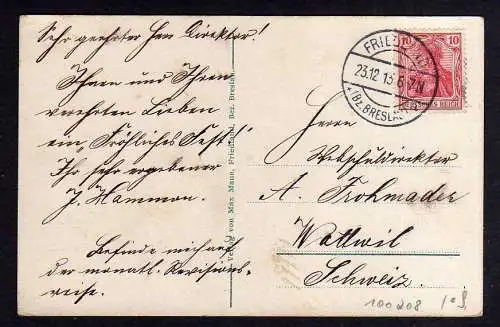 Sehr geehrter Herr Direktor!
Ihnen und Ihren
verehrten Lieben
ein "Fröhliches Fest"!
Ihr sehr ergebener
J. Hammon.
Befinde mich auf
der monatl. Revisions-
reise.
Verlag von Max Mann, Friedland, Bez. Breslau
FRIEDLAND
23.12.13.6-7N
* (Bz. BRESLAU)
10 10
REICH
Herrn
Webschuldirektor
A. Frohmader
Wattwil
Schweiz.
100208